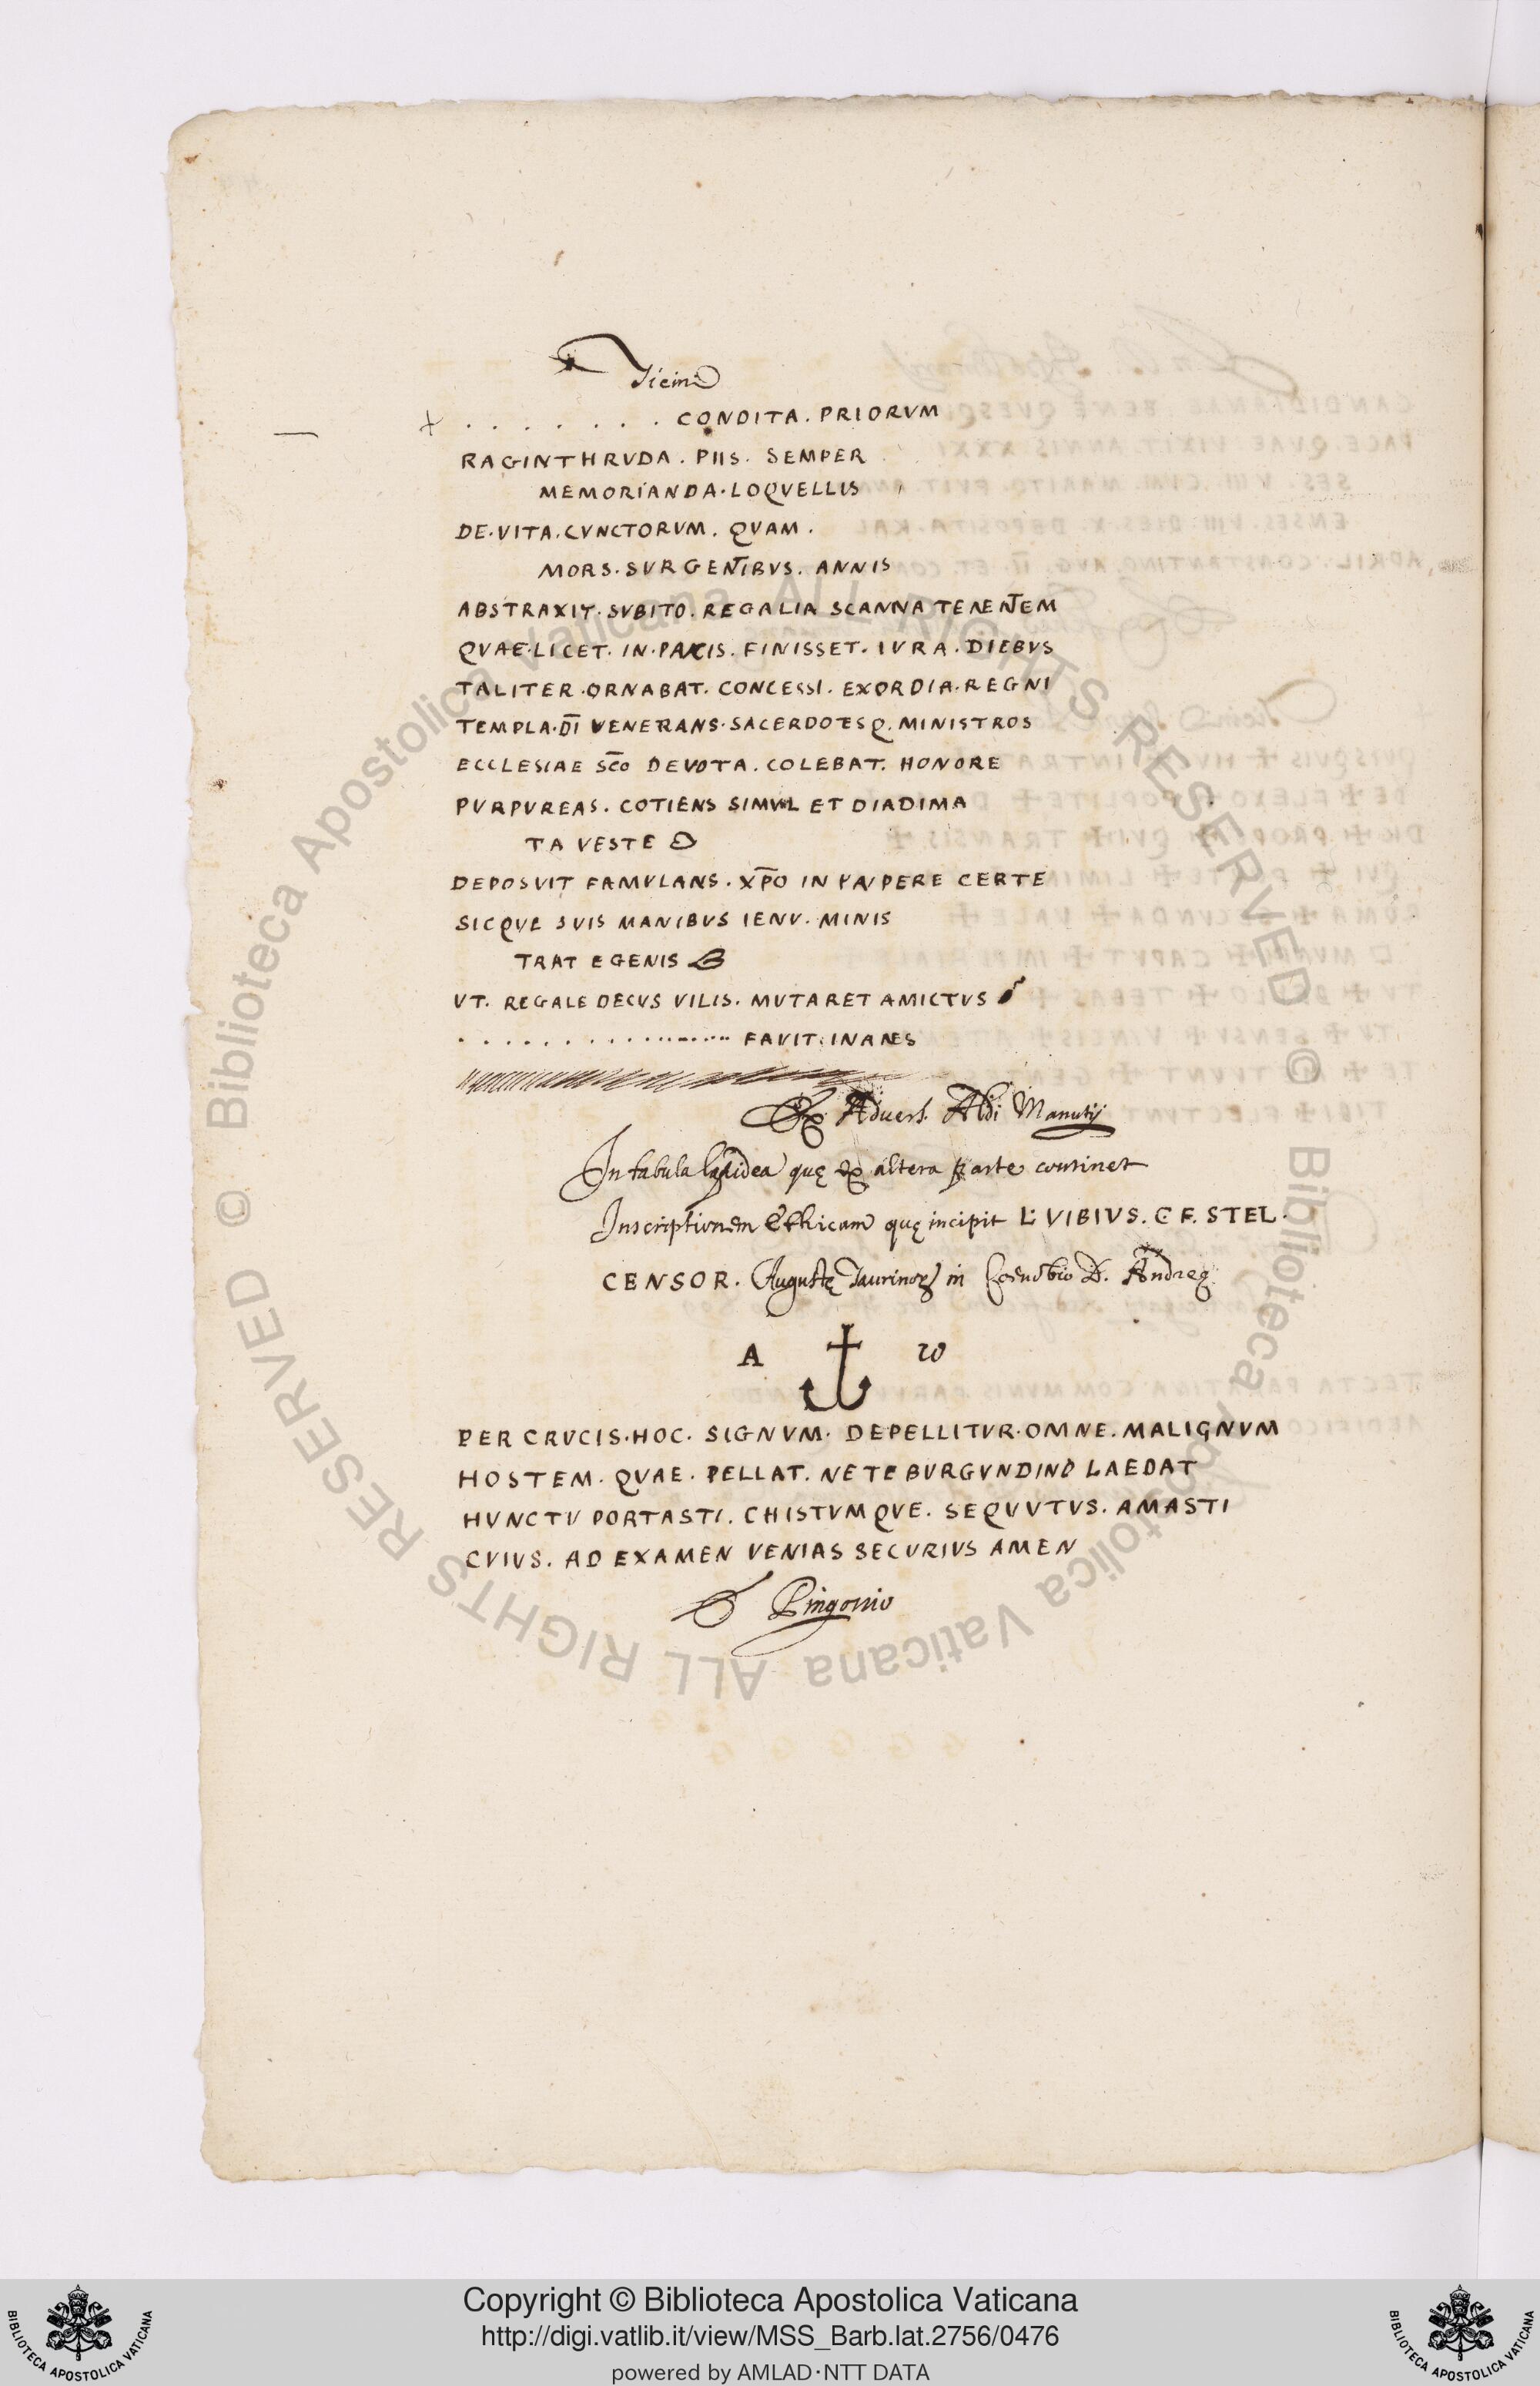 Ticini
+ . . . . . . . CONDITA . PRIORVM
RAGINTHRVDA . PIIS . SEMPER
MEMORIANDA . LOQVELLIS
DE . VITA . CVNCTORVM . QVAM .
MORS . SVRGENTIBVS . ANNIS
ABSTRAXIT . SVBITO . REGALIA SCANNA TENENTEM
QVAE . LICET . IN . PAVCIS . FINISSET . IVRA . DIEBVS
TALITER . ORNABAT . CONCESSI . EXORDIA . REGNI
TEMPLA . DI VENERANS . SACERDOTESQ . MINISTROS
ECCLESIAE SCO DEVOTA . COLEBAT . HONORE
PVRPVREAS . COTIENS SIMVL ET DIADIMA
TA VESTE
DEPOSVIT FAMVLANS . XPO IN PAVPERE CERTE
SICQVE SVIS MANIBVS IENV . MINIS
TRAT EGENIS
VT . REGALE DECVS VILIS . MVTARET AMICTVS
. . . . . . . . . . . . . . . . FAVIT : INANES
Ex Advers. Aldi Manutij
In tabula lapidea quę ex altera parte continet
Inscriptionem Ethicam quę incipit L. VIBIVS . C F . STEL .
CENSOR . Augustę Taurinoꝝ in Coenobio D. Andreę
A ω
PER CRVCIS . HOC . SIGNVM . DEPELLITVR . OMNE . MALIGNVM
HOSTEM . QVAE . PELLAT . NE TE BVRGVNDINO LAEDAT
HVNC TV PORTASTI . CHISTVMQVE . SEQVVTVS . AMASTI
CVIVS . AD EXAMEN VENIAS SECVRIVS AMEN
Pingonio
© Biblioteca Apostolica Vaticana ALL RIGHTS RESERVED © Biblioteca Apostolica Vaticana ALL RIGHTS RESERVED
Copyright © Biblioteca Apostolica Vaticana
http://digi.vatlib.it/view/MSS_Barb.lat.2756/0476
powered by AMLAD·NTT DATA
BIBLIOTECA APOSTOLICA VATICANA
BIBLIOTECA APOSTOLICA VATICANA